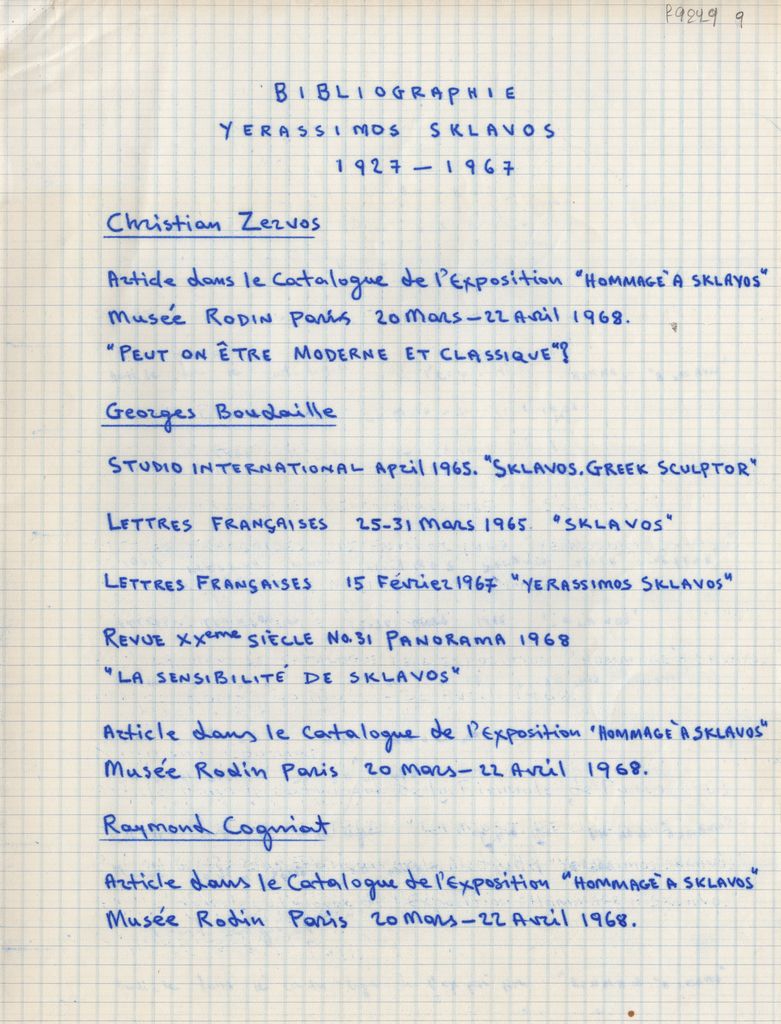 BIBLIOGRAPHIE
YERASSIMOS SKLAVOS
1927 – 1967
Christian Zervos
Article dans le Catalogue de l'Exposition "HOMMAGE À SKLAVOS"
Musée RODIN Paris 20 Mars – 22 Avril 1968.
"PEUT ON ÊTRE MODERNE ET CLASSIQUE"?
Georges Boudaille
STUDIO INTERNATIONAL April 1965. "SKLAVOS. GREEK SCULPTOR"
LETTRES FRANÇAISES 25-31 Mars 1965. "SKLAVOS"
LETTRES FRANÇAISES 15 Février 1967 "YERASSIMOS SKLAVOS"
REVUE XXeme SIÈCLE No.31 PANORAMA 1968
"LA SENSIBILITÉ DE SKLAVOS"
Article dans le Catalogue de l'Exposition "HOMMAGE À SKLAVOS"
Musée Rodin Paris 20 Mars – 22 Avril 1968.
Raymond Cogniat
Article dans le Catalogue de l'Exposition "HOMMAGE À SKLAVOS"
Musée Rodin Paris 20 Mars – 22 Avril 1968.